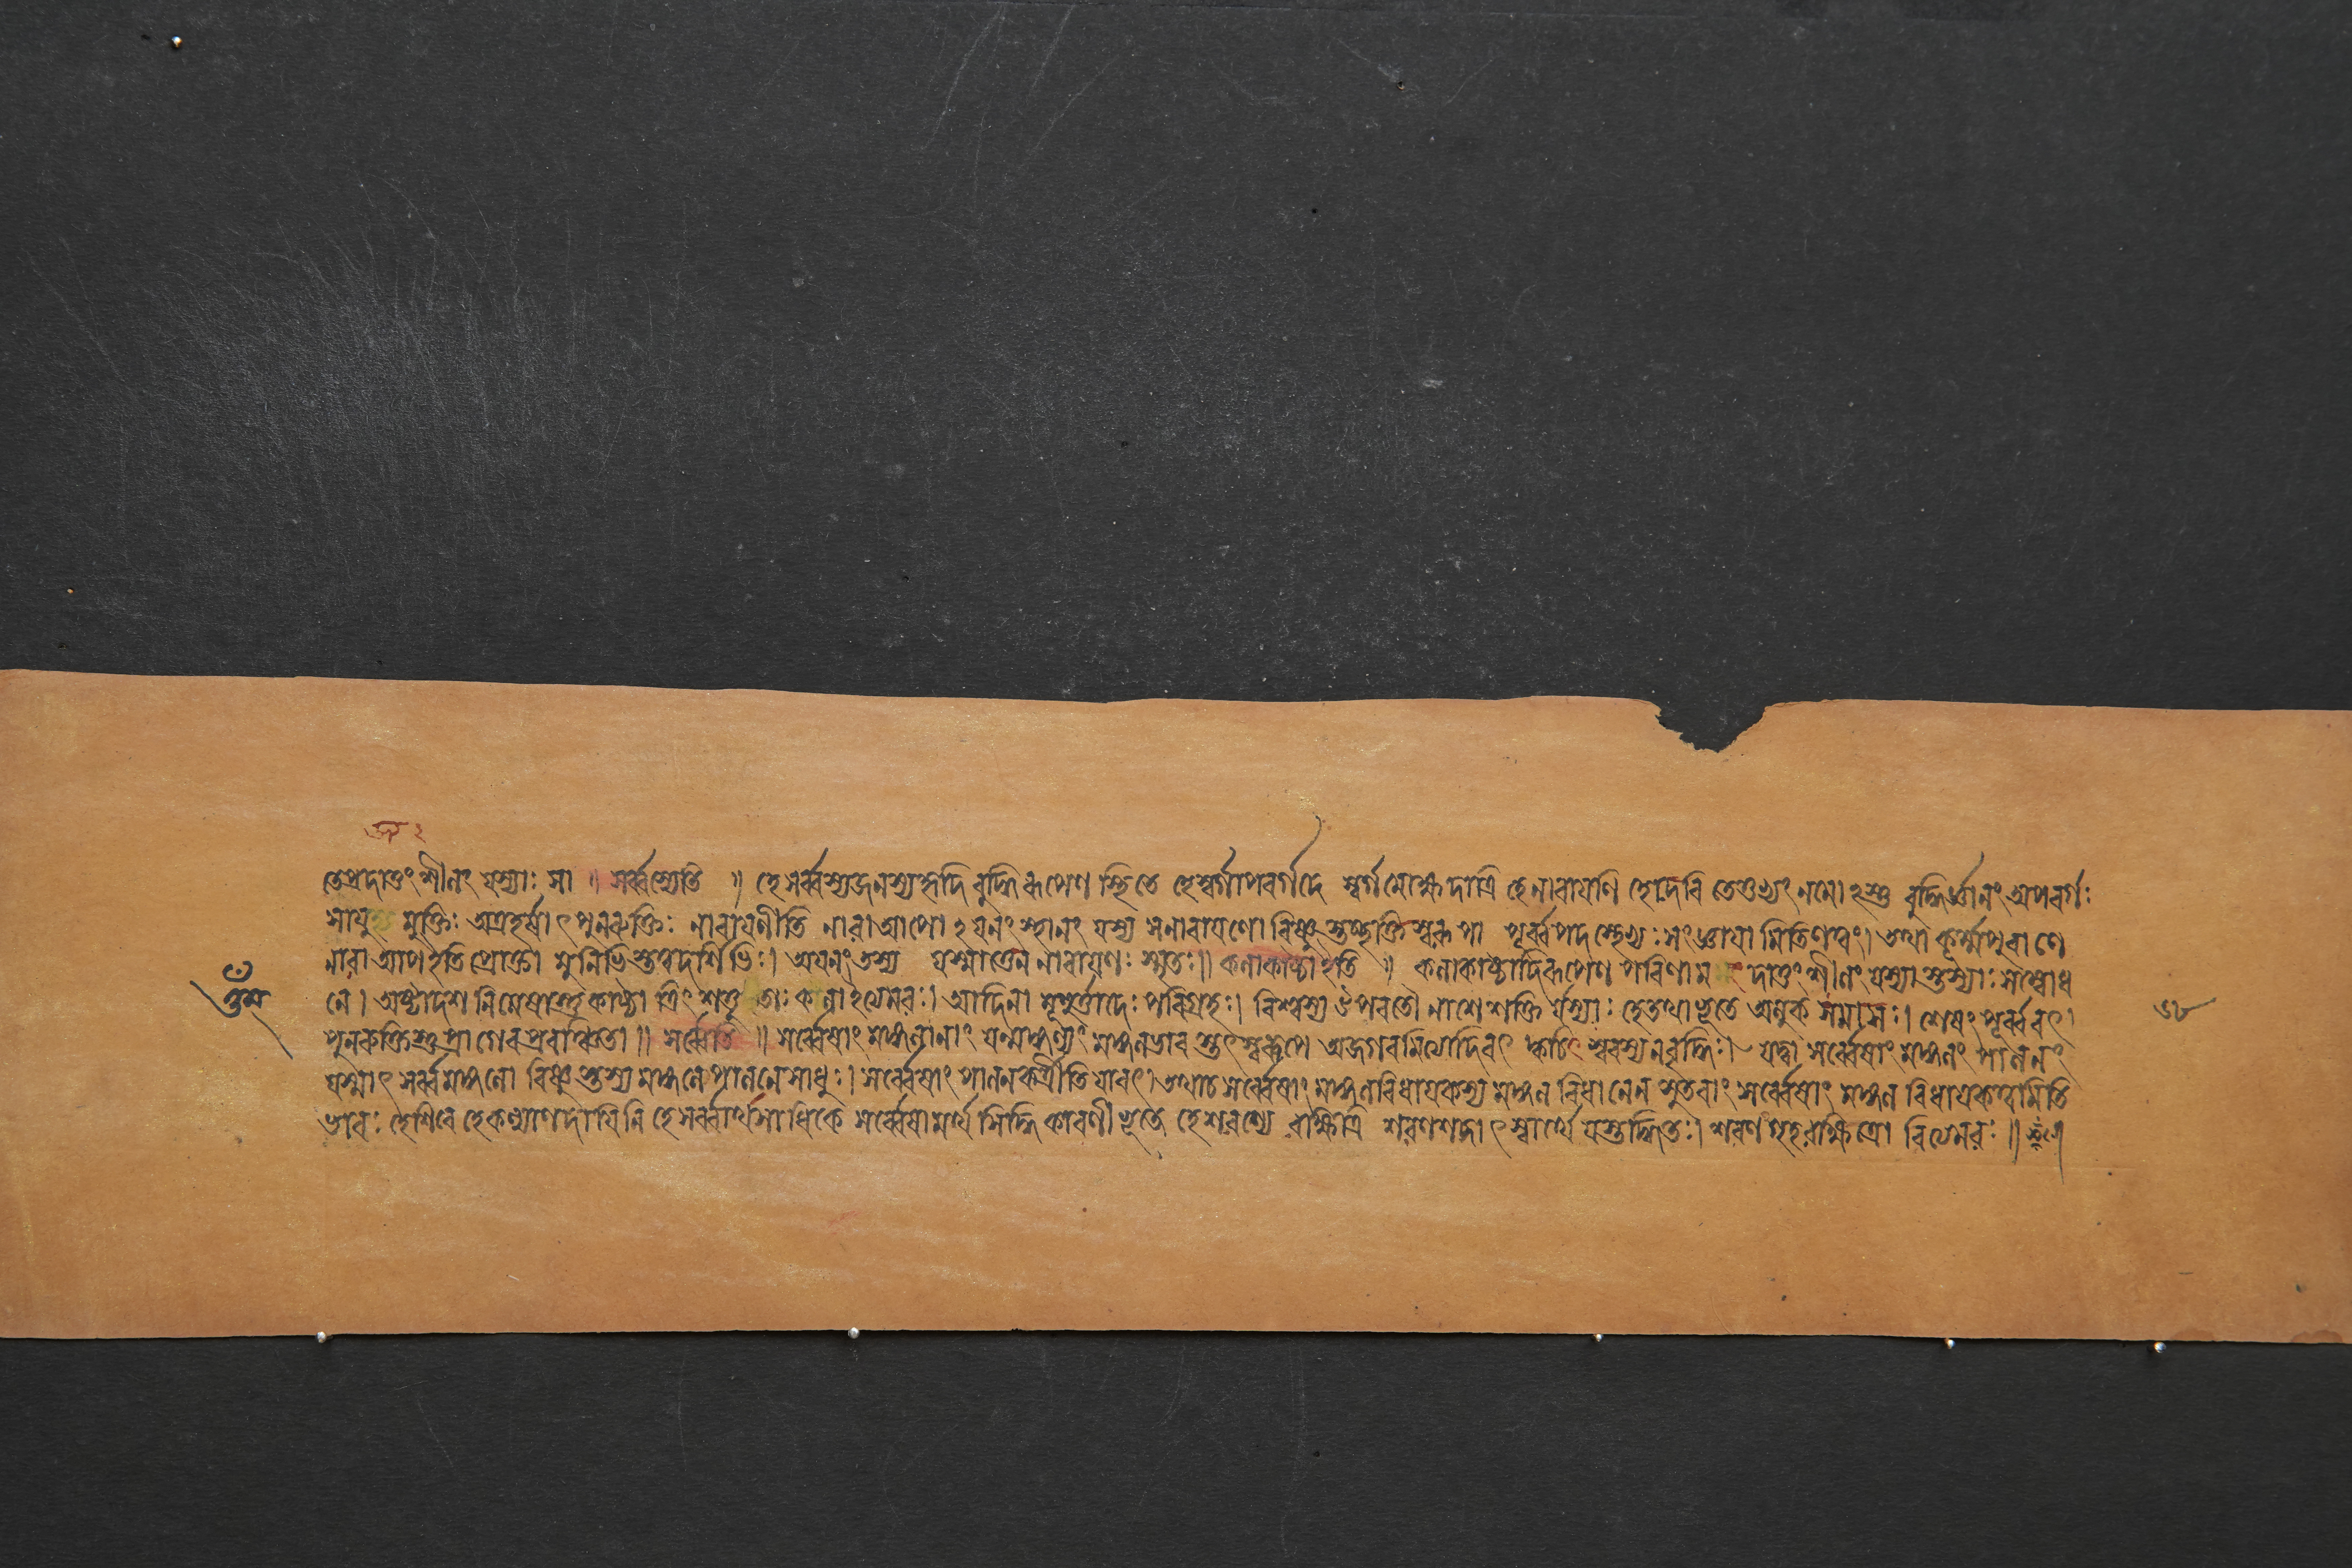 তেপ্রদাতুং শীলং যস্যাঃ সা ॥ সর্ব্বস্যেতি ॥ হে সর্ব্বস্যজনস্যহৃদি বুদ্ধিরূপেণ স্থিতে হেস্বর্গাপবর্গদে স্বর্গমোক্ষদাত্রি হেনারায়ণি হেদেবি তেতুভ্যং নমোঽস্তু বুদ্ধির্জ্ঞানং অপবর্গঃ
মুক্তিঃ পুনরুক্তিঃ নারায়ণীতি নারা আপো ঽয়নং স্থানং যস্য সনারায়ণো বিষ্ণুস্তচ্ছক্তিস্বরূপা পূর্ব্বপদস্থেভ্যঃ সংজ্ঞায়া মিতিণত্বং। তথা কূর্ম্মপুরাণে
নারা আপ ইতি প্রোক্তা মুনিভিস্তত্ত্বদর্শিভিঃ। অয়নং তস্য যস্মাত্তেন নারায়ণঃ স্মৃতঃ॥ কলাকাষ্ঠা ইতি ॥ কলাকাষ্ঠাদিরূপেণ পরিণাম দাতুং শীলং যস্যাস্তস্যাঃ সম্বোধ
নে। অষ্টাদশ নিমেষাস্তু কাষ্ঠা ত্রিংশত্তু তাঃ কলা ইত্যমরঃ। আদিনা মুহূর্ত্তাদেঃ পরিগ্রহঃ। বিশ্বস্য উপরতৌ নাশে শক্তি র্যস্যাঃ হেতথাভূতে অলুক্ সমাসঃ। শেষং পূর্ব্ববৎ।
পুনরুক্তিস্তু প্রাগেব প্রবাঞ্চিতা ॥ সর্ব্বেতি ॥ সর্ব্বেষাং মঙ্গলানাং যন্মঙ্গল্যং মঙ্গলভাব স্তৎস্বরূপে যদ্বা সর্ব্বেষাং মঙ্গলং পালনং
যস্মাৎ সর্ব্বমঙ্গলো বিষ্ণুস্তস্য মঙ্গলে পালনে সাধুঃ। সর্ব্বেষাং পালনকর্ত্রীতি যাবৎ। তথাচ সর্ব্বেষাং মঙ্গলবিধায়কস্য মঙ্গল বিধানেন সুতরাং সর্ব্বেষাং মঙ্গল বিধায়কত্বমিতি
ভাবঃ হেশিবে হেকল্যাণদায়িনি হে সর্ব্বার্থসাধিকে সর্ব্বেষা মর্থ সিদ্ধি কারণীভূতে হেশরণ্যে রক্ষিত্রি শরণশব্দাৎ স্বার্থে যস্তদ্ধিতঃ। শরণং গৃহরক্ষিত্রো রিত্যমরঃ ॥